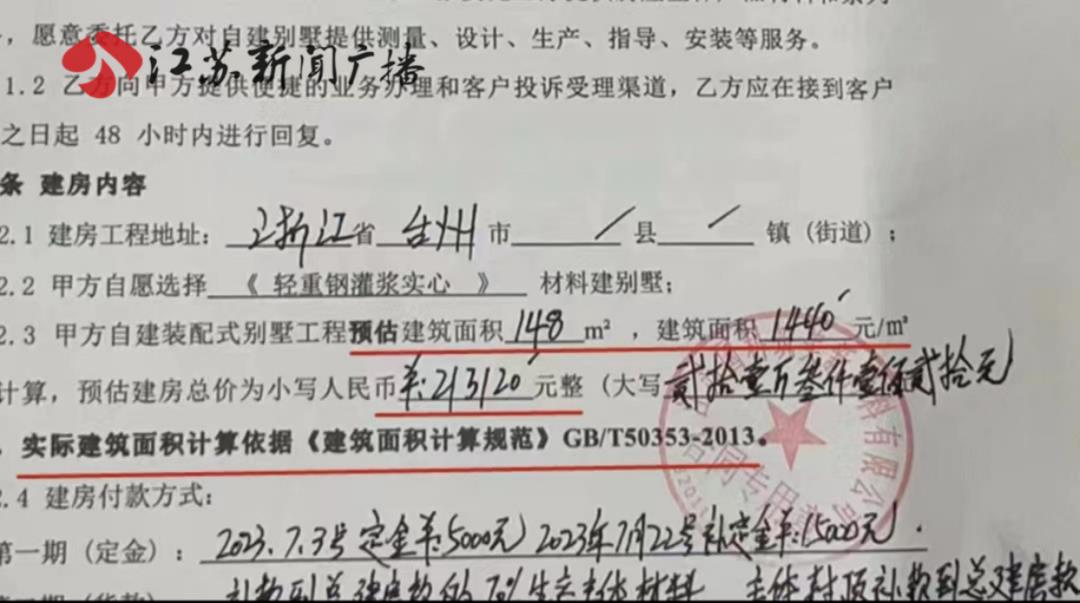 ，愿意委托乙方对自建别墅提供测量、设计、生产、指导、安装等服务。
江苏新闻广播
1.2 乙方向甲方提供便捷的业务办理和客户投诉受理渠道，乙方应在接到客户
之日起 48 小时内进行回复。
条 建房内容
2.1 建房工程地址：浙江省 台州 市 / 县 / 镇（街道）；
2.2 甲方自愿选择 《 轻重钢灌浆实心 》 材料建别墅；
2.3 甲方自建装配式别墅工程预估建筑面积 148 m²，建筑面积 1440 元/㎡
计算，预估建房总价为小写人民币 羊:213120 元整（大写 贰拾壹万叁仟壹佰贰拾元）
实际建筑面积计算依据《建筑面积计算规范》GB/T50353-2013。
2.4 建房付款方式：
第一期（定金）：2023.7.3号定金羊:5000元）2023年7月22号补定金羊:15000元）.
补款到总建房款的70%生产主体材料 主体封顶补款到总建房款
科有限公司
合同专用章